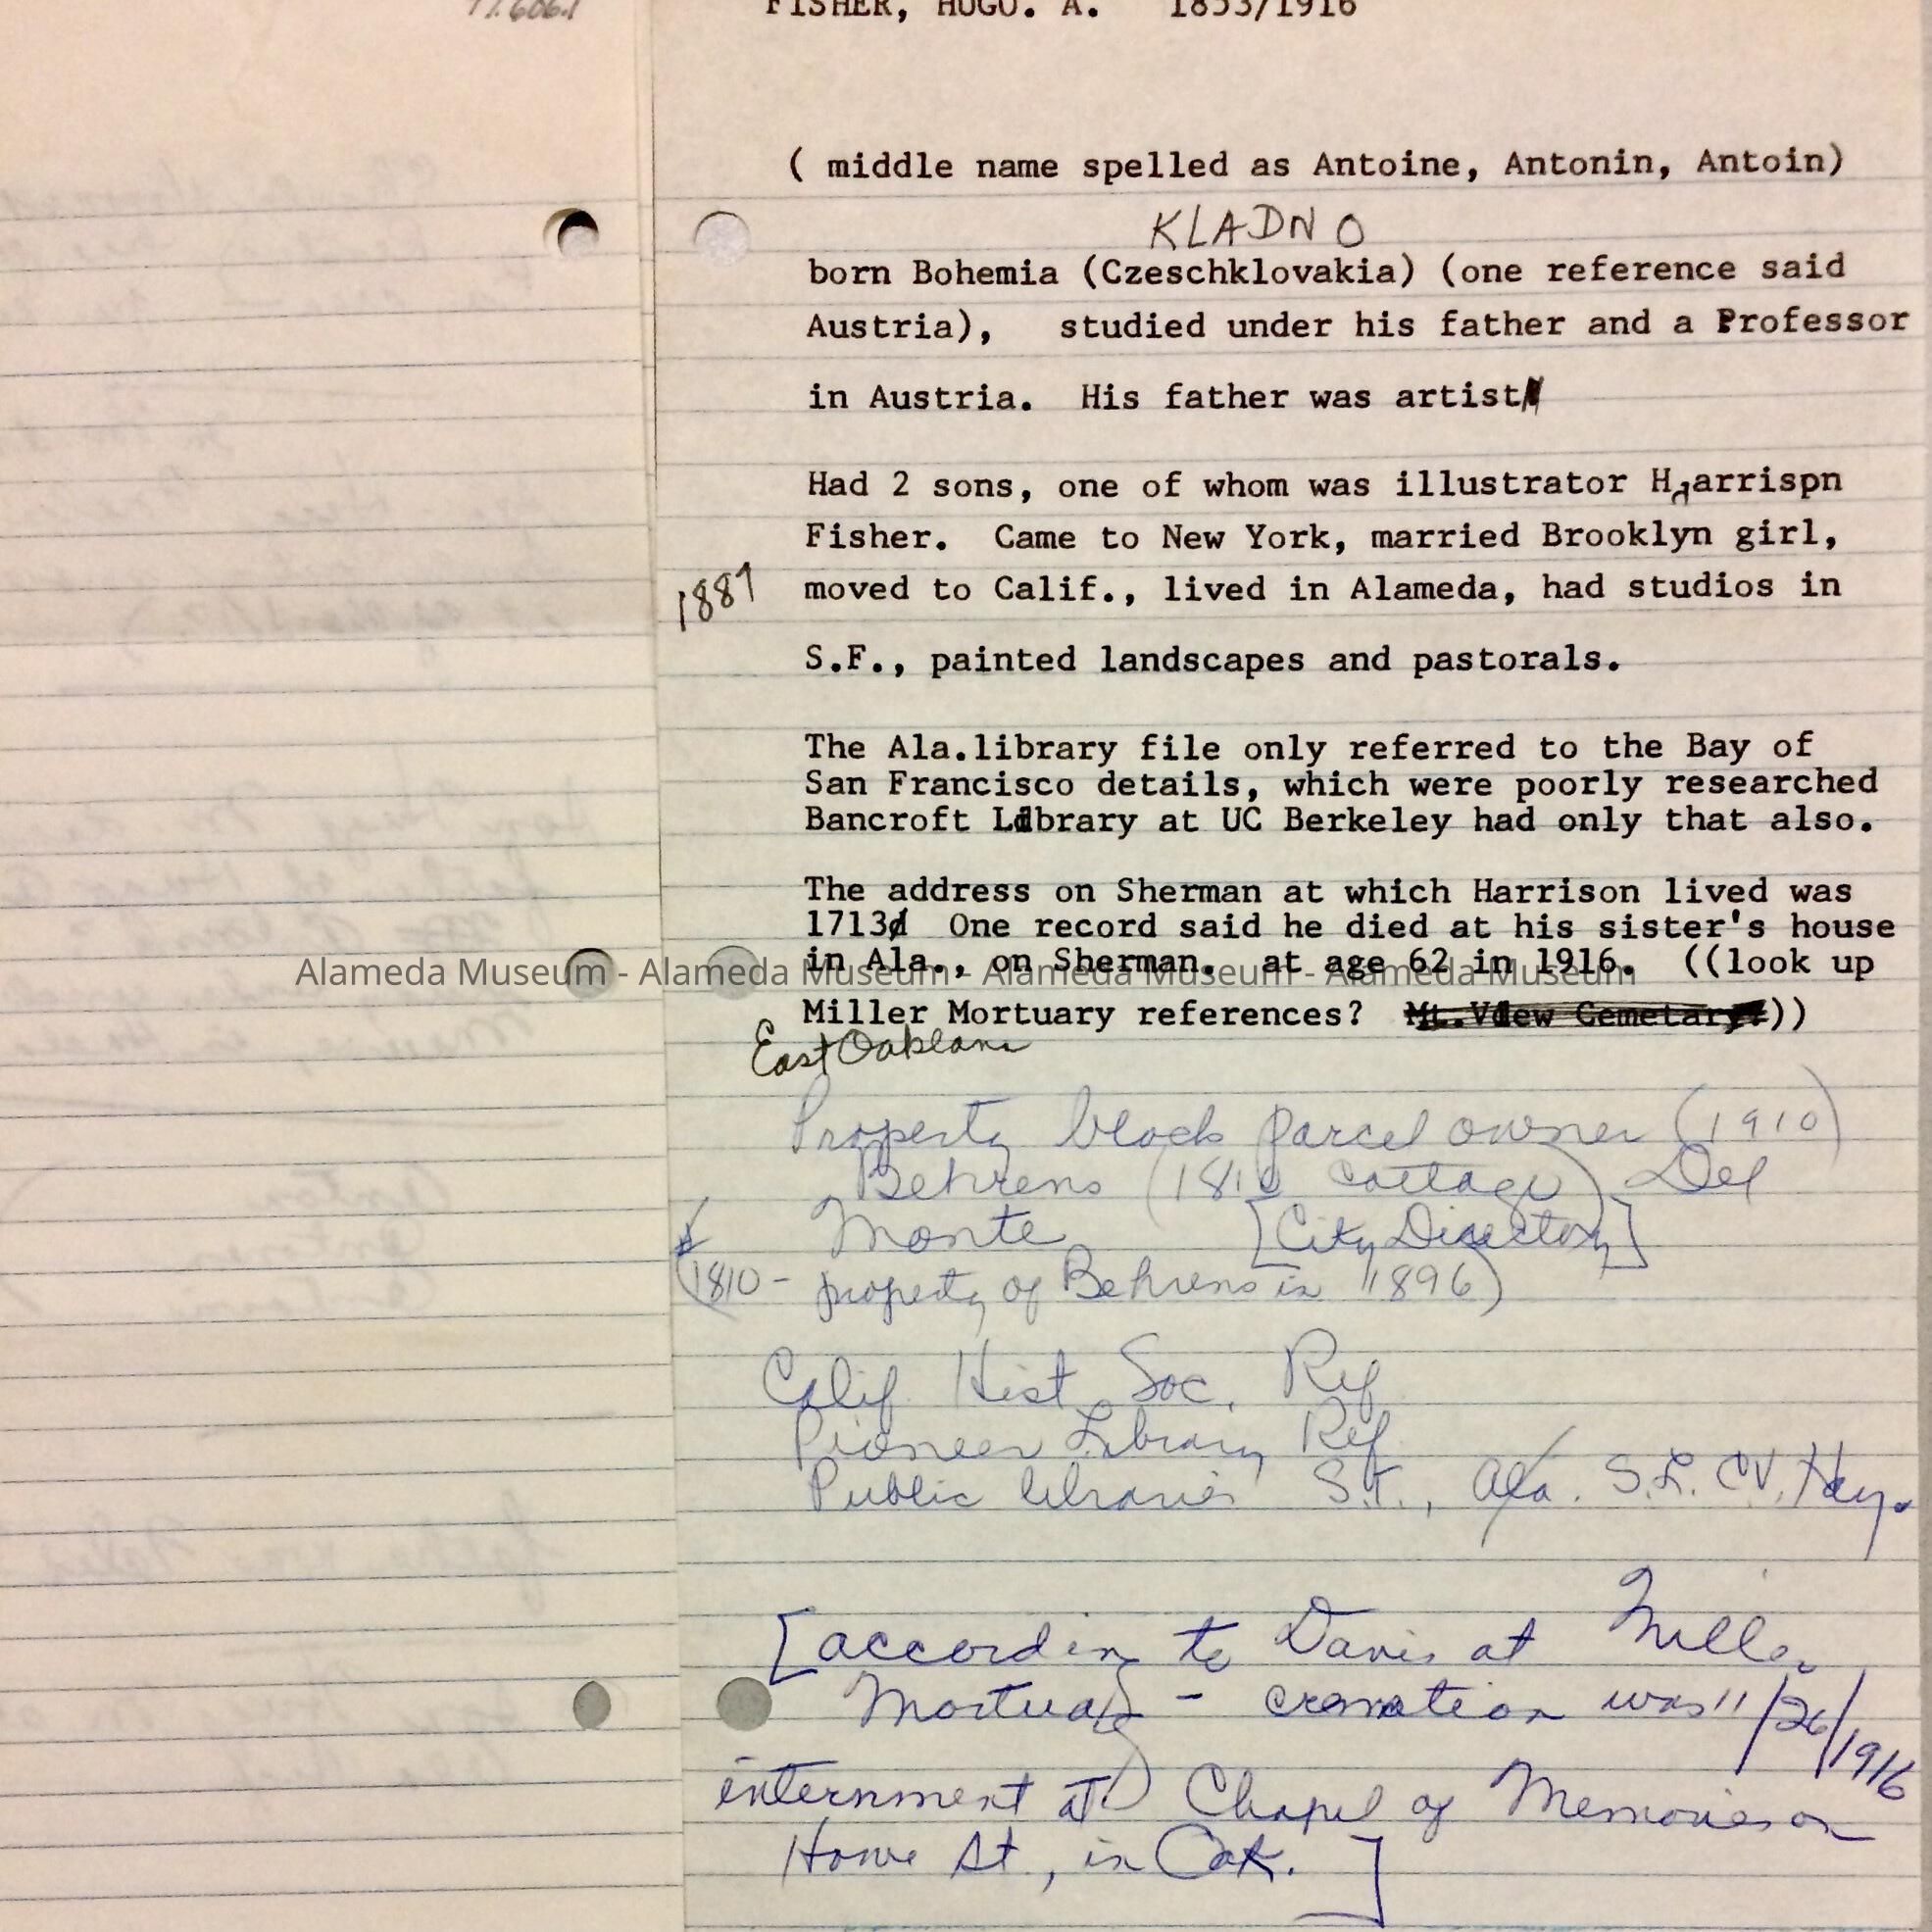 FISHER, HUGO. A. 1853/1916
( middle name spelled as Antoine, Antonin, Antoin)
KLADNO
born Bohemia (Czeschklovakia) (one reference said
Austria), studied under his father and a Professor
in Austria. His father was artist
Had 2 sons, one of whom was illustrator Haarrispn
Fisher. Came to New York, married Brooklyn girl,
1887
moved to Calif., lived in Alameda, had studios in
S.F., painted landscapes and pastorals.
The Ala.library file only referred to the Bay of
San Francisco details, which were poorly researched
Bancroft Library at UC Berkeley had only that also.
The address on Sherman at which Harrison lived was
1713 One record said he died at his sister's house
in Ala., on Sherman. at age 62 in 1916. ((look up
Alameda Museum - Alameda Museum - Alameda Museum - Alameda Museum
Miller Mortuary references? Mt.View Cemetary))
East Oakland
Property block parcel owner (1910)
Behrens (1810 cottage) Del
Monte [City Directory]
(1810 - property of Behrens in 1896)
Calif Hist Soc. Ref
Pioneer Library Ref
Public libraries S.F., Ala. S.L. C.V. Hay.
[according to Davis at Miller
Mortuary - cremation was 11/26/1916
internment at Chapel of Memories on
Howe St., in Oak.]